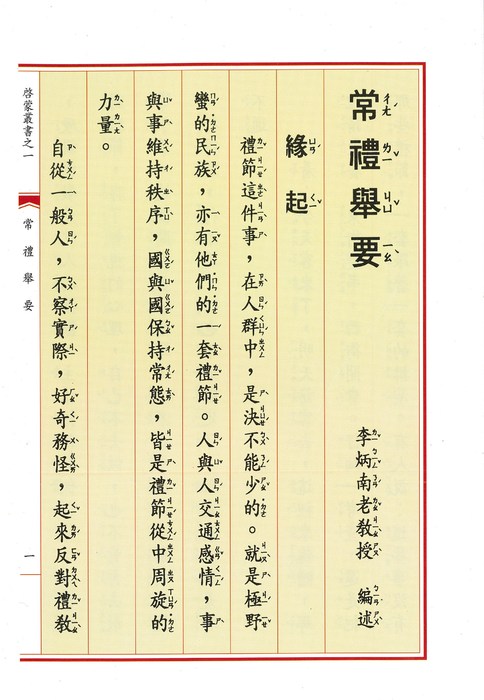 常禮舉要
李炳南老教授 編述
緣起
禮節這件事，在人群中，是決不能少的。就是極野
蠻的民族，亦有他們的一套禮節。人與人交通感情，事
與事維持秩序，國與國保持常態，皆是禮節從中周旋的
力量。
自從一般人，不察實際，好奇務怪，起來反對禮教
啓蒙叢書之一
常禮舉要
一